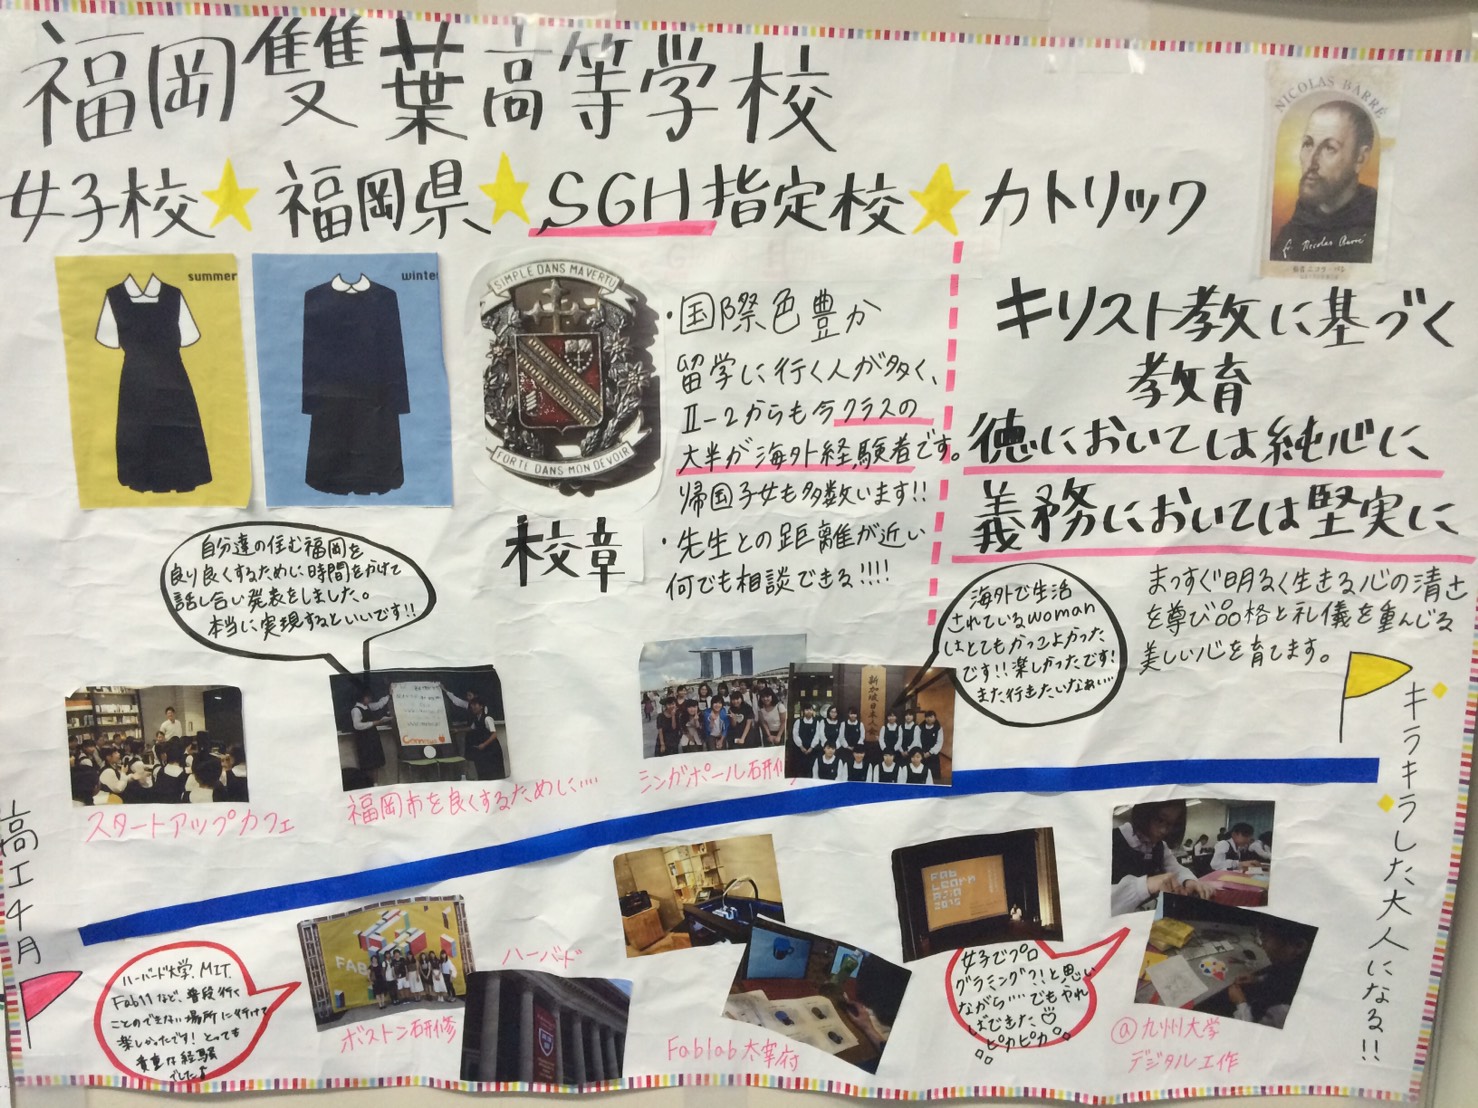 福岡雙葉高等学校
女子校★福岡県★SGH指定校★カトリック
NICOLAS BARRÉ
summer
winte
SIMPLE DANS MA VERTU
FORTE DANS MON DEVOIR
校章
・国際色豊か
留学に行く人が多く、
Ⅱ-2からも今クラスの
大半が海外経験者です。
帰国子女も多数います!!
・先生との距離が近い
何でも相談できる!!!!
キリスト教に基づく
教育
徳においては純心に
義務においては堅実に
まっすぐ明るく生きる心の清さ
を尊び品格と礼儀を重んじる
美しい心を育てます。
自分達の住む福岡を
良り良くするために時間をかけて
話し合い発表をしました。
本当に実現するといいです!!
海外で生活
されているwoman
はとてもかっこよかった
です!!楽しかったです!
また行きたいなぁぃ…
スタートアップカフェ
福岡市を良くするために….
シンガポール研修
新加坡日本人会
高工4月
キラキラした大人になる!!
ハーバード大学、MIT、
Fab11など、普段行く
ことのできない場所に行けて
楽しかったです!とっても
貴重な経験
でした♪
FAB
ボストン研修
ハーバード
Fablab太宰府
Fab
Learn
Asia
2015
女子でプロ
グラミング?!と思い
ながら…でもやれ
ばできた♡
ピカピカ
@九州大学
デジタル工作